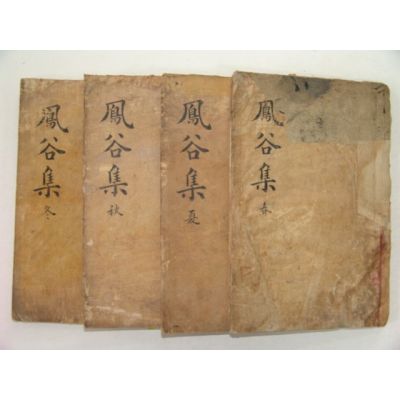 鳳谷集 春
鳳谷集 夏
鳳谷集 秋
鳳谷集 冬